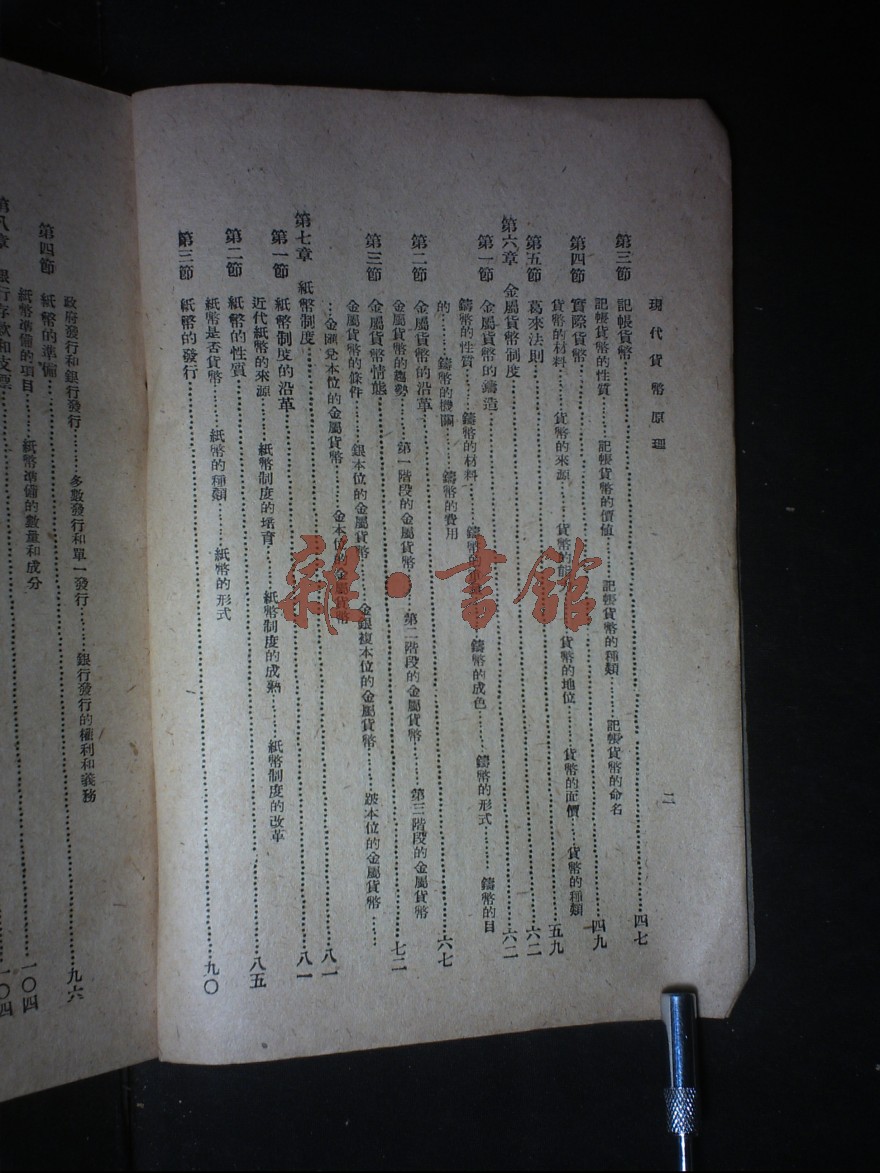 現代貨幣原理　二
第三節　記帳貨幣……四七
記帳貨幣的性質……記帳貨幣的價值……記帳貨幣的種類……記帳貨幣的命名
第四節　實際貨幣……四九
貨幣的材料……貨幣的來源……貨幣的能力……貨幣的地位……貨幣的面價……貨幣的種類
第五節　葛來法則……五九
第六章　金屬貨幣制度……六二
第一節　金屬貨幣的鑄造……六二
鑄幣的性質……鑄幣的材料……鑄幣的……鑄幣的成色……鑄幣的形式……鑄幣的目
的……鑄幣的機關……鑄幣的費用
第二節　金屬貨幣的沿革……六七
金屬貨幣的趨勢……第一階段的金屬貨幣……第二階段的金屬貨幣……第三階段的金屬貨幣
第三節　金屬貨幣情態……七二
金屬貨幣的條件……銀本位的金屬貨幣……金銀複本位的金屬貨幣……跛本位的金屬貨幣……
…金匯兌本位的金屬貨幣……金本位的金屬貨幣
第七章　紙幣制度……八一
第一節　紙幣制度的沿革……八一
近代紙幣的來源……紙幣制度的培育……紙幣制度的成熟……紙幣制度的改革
第二節　紙幣的性質……八五
紙幣是否貨幣……紙幣的種類……紙幣的形式
第三節　紙幣的發行……九〇
政府發行和銀行發行……多數發行和單一發行……銀行發行的權利和義務
第四節　紙幣的準備……九六
紙幣準備的項目……紙幣準備的數量和成分
第八章　銀行存款和支票……一〇四
一〇四
雜·書館